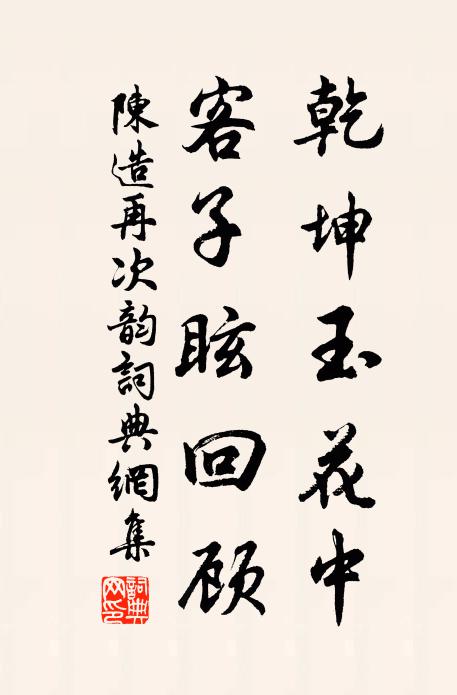 乾坤玉花中
客子眩回顾
陳造再次韵詞典網集
詞典网印